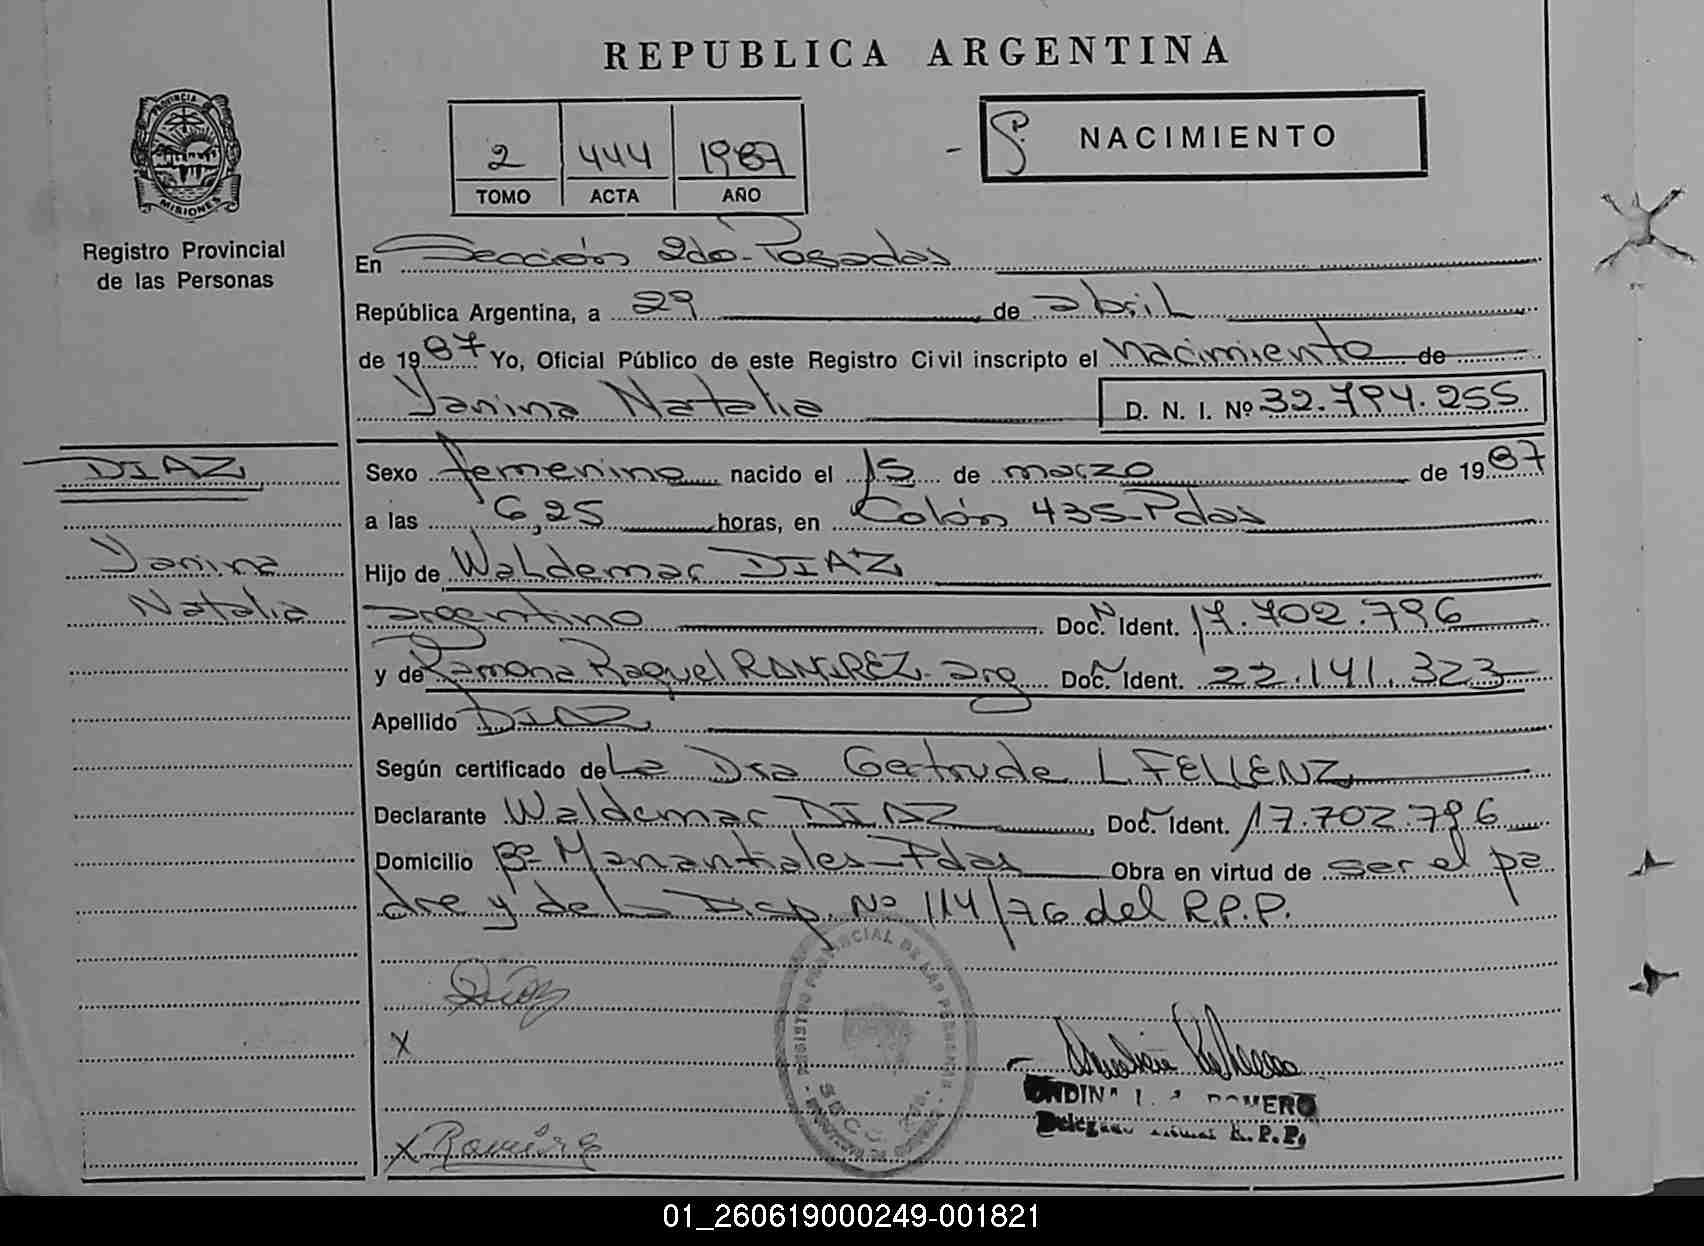 REPUBLICA ARGENTINA
PROVINCIA
MISIONES
Registro Provincial
de las Personas
2 444 1987
TOMO ACTA AÑO
NACIMIENTO
En Sección 2do-Posadas
República Argentina, a 29 de abril
de 1987 Yo, Oficial Público de este Registro Civil inscripto el Nacimiento de
Yanina Natalia D. N. I. Nº 32.794.255
DIAZ
Yanina
Natalia
Sexo femenino nacido el 15 de marzo de 1987
a las 6,25 horas, en Colón 435-Pdas
Hijo de Waldemar DIAZ
argentino Doc. N Ident. 17.702.796
y de Ramona Raquel RAMIREZ- arg Doc. N Ident. 22.141.323
Apellido DIAZ
Según certificado de La Dra Gertrude L FELLENZ
Declarante Waldemar DIAZ Doc. N Ident. 17.702.796
Domicilio Bº Manantiales-Pdas Obra en virtud de ser el pa
dre y de la Disp. Nº 114/76 del R.P.P.
Díaz
X
REGISTRO PROVINCIAL DE LAS PERSONAS
X Ramirez
ROMERO
R.P.P.
01_260619000249-001821